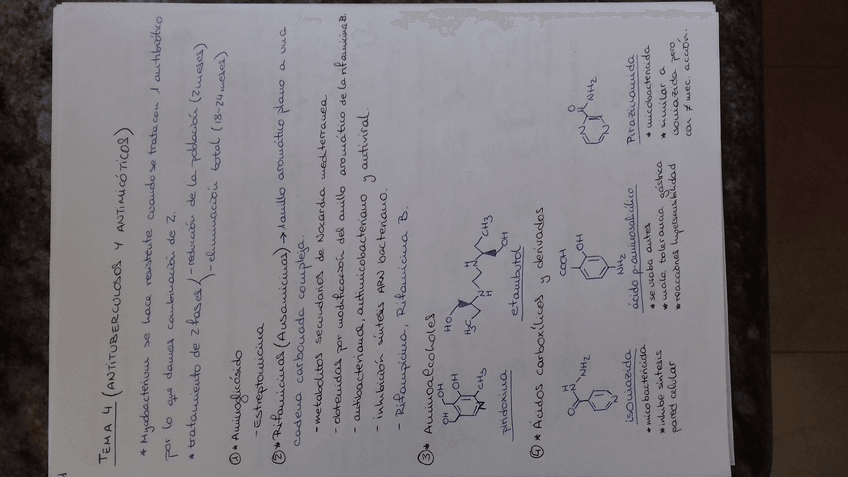 1
TEMA 4 (ANTITUBERCULOSOS Y ANTIMICÓTICOS)
* Mycobacterium se hace resistente cuando se trata con 1 antibiótico
por lo que damos combinación de 2.
* tratamiento de 2 fases - reducción de la población (2 meses)
- eliminación total (18-24 meses)
① * Aminoglicósido
- Estreptomicina
② * Rifamicinas (Ansamicinas) → 1 anillo aromático plano a una
cadena carbonada compleja.
- metabolitos secundarios de Nocardia mediterranea
- obtenidas por modificación del anillo aromático de la rifamicina B.
- antibacteriana, antimicobacteriano y antiviral.
- inhibición síntesis ARN bacteriano.
- Rifampicina, Rifamicina B.
③ * Aminoalcoholes
OH OH OH CH3 N
HO H3C N H H N CH3 OH
piridoxina etambutol
④ * Ácidos carboxílicos y derivados
O H N NH2 N
COOH OH NH2
O NH2 N N
isoniazida
* micobactericida
* inhibe síntesis
pared celular
ácido p-aminosalicílico
* se usaba antes
* mala tolerancia gástrica
* reacciones hipersensibilidad
Pirazinamida
* micobactericida
* similar a
isoniazida pero
con ≠ mec. acción.